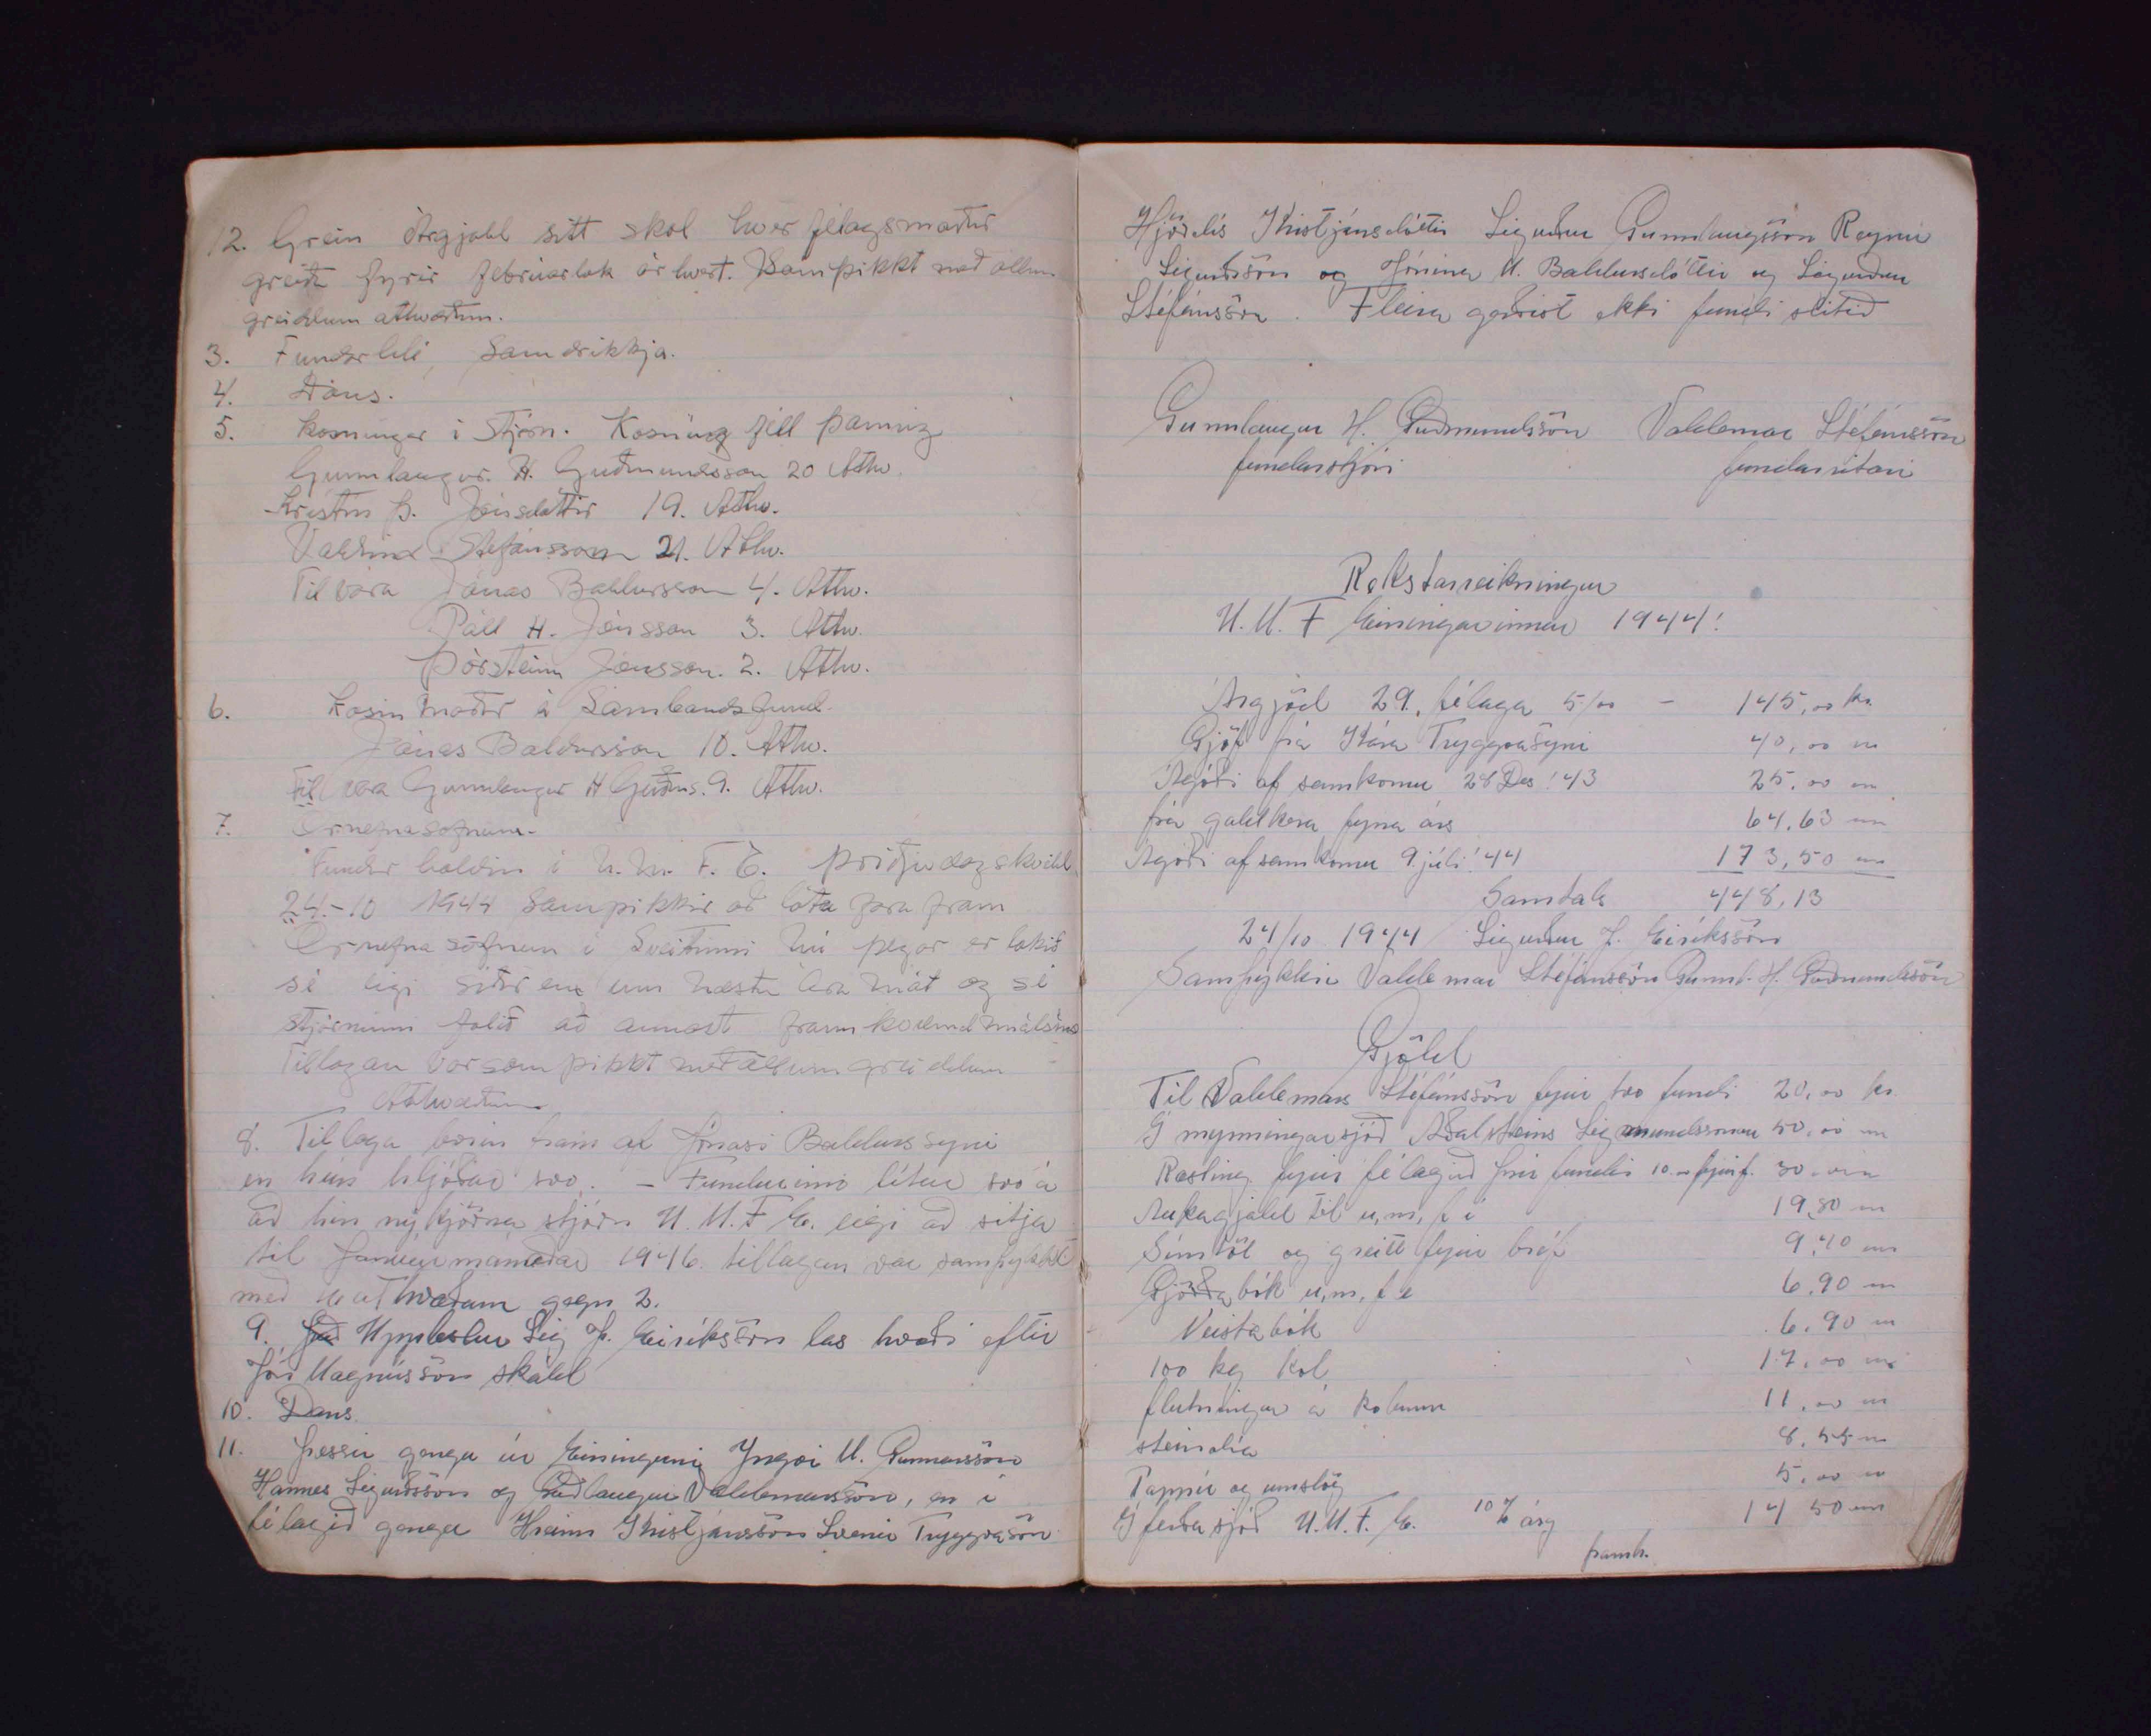 12. Grein Árgjald sitt skal hver félagsmaður
greiða fyrir febrúarlok ár hvert. Samþikkt með öllum
greiddum atkvæðum.
3. Fundarhlé, Samdrikkja.
4. Dans.
5. Kosningar í Stjórn. Kosning féll þannig
Gunnlaugur. H. Guðmundsson 20 Atkv.
Kristín Þ. Jónsdóttir 19. Atkv.
Valdimar Stefánsson 21. Atkv.
Til vara Jónas Baldursson 4. Atkv.
Páll H. Jónsson 3. Atkv.
Þórsteinn Jónsson. 2. Atkv.
6. Kosin maður á Sambandsfund.
Jónas Baldursson 10. Atkv.
Til vara Gunnlaugur H Guðms. 9. Atkv.
7. Örnefnasöfnun.
Fundur haldin í U. M. F. E. þriðjudagskvöld
24.-10 1944 Samþikkir að láta fara fram
Örnefna söfnun í Sveitinni Nú þegar er lokið
sé eigi síðar en um næstu ára mót og sé
stjórninni falið að annast framkvæmd málsins
Tillagan var samþikkt með öllum greiddum
Atkvæðum
8. Tillaga borin fram af Jónasi Baldurssyni
en hún hljóðar svo. - Fundurinn lítur svo á
að hin ný kjörna stjórn U. M. F E. eigi að sitja
til Janúarmánaðar 1946. tillagan var samþykkt
með atkvæðum gegn 2.
9. Upplestur Sig J. Eiríksson las kvæði eftir
Jón Magnússon skáld
10. Dans.
11. Þessir gengu úr Einingunni Yngvi M. Gunnarsson
Hannes Sigurðsson og Guðlaugur Valdemarsson, en í
félagið gengu Hreinn Kristjánsson Sverrir Tryggvason
Hjördís Kristjánsdóttir Sigurður Gunnlaugsson Reynir
Sigurðsson og Jónína M. Baldursdóttir og Sigurður
Stefánsson. Fleira gerðist ekki fundi slitið
Gunnlaugur H. Guðmundsson Valdemar Stefánsson
fundarstjóri fundarritari
Rekstarreikningur
U. M. F Einingarinnar 1944!
Árgjöld 29. félaga 5/00 - 145,00 kr.
Gjöf frá Kára Tryggvasyni 40,00 "
Ágóði af samkomu 28 Des! 43 25.00 "
frá galdkera fyrra árs 64,63 "
Ágóði af samkomu 9 júlí! 44 173,50 "
Samtals 448,13
24/10 1944 Sigurður J. Eiríksson
Samþykkir Valdemar Stefánsson Gunnl. H. Guðmundsson
Gjöld
Til Valdemars Stefánsson fyrir tvo fundi 20,00 kr.
Í mynningarsjóð Aðalsteins Sigmundssonar 50,00 "
Ræsting fyrir félagið þrír fundir 10.- fyrir f. 30.00 "
Aukagjald til u, m, f í 19,80 "
Símtöl og greitt fyrir bréf 9,40 "
Gjörðabók u, m, f e 6,90 "
Veistabók 6,90 "
100 kg Kol 17,00 "
flutningur á kolunum 11,00 "
steinolía 8,55 "
Pappír og umslög 5,00 "
Í ferðasjóð U. M. F. E. 10% árg 14 50 "
framh.